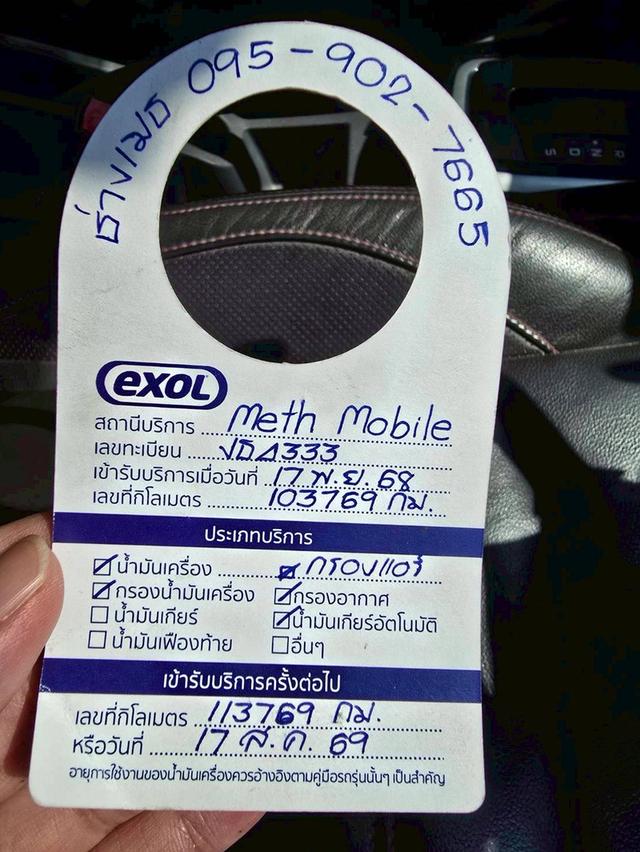 ช่างเมธ 095-902-7665
exol
สถานีบริการ Meth Mobile
เลขทะเบียน 333
เข้ารับบริการเมื่อวันที่ 17 พ.ย. 68
เลขที่กิโลเมตร 103769 กม.
ประเภทบริการ
น้ำมันเครื่อง กรองแอร์
กรองน้ำมันเครื่อง กรองอากาศ
น้ำมันเกียร์ น้ำมันเกียร์อัตโนมัติ
น้ำมันเฟืองท้าย อื่นๆ
เข้ารับบริการครั้งต่อไป
เลขที่กิโลเมตร 113769 กม.
หรือวันที่ 17 ส.ค. 69
อายุการใช้งานของน้ำมันเครื่องควรอ้างอิงตามคู่มือรถรุ่นนั้นๆ เป็นสำคัญ
S D N R